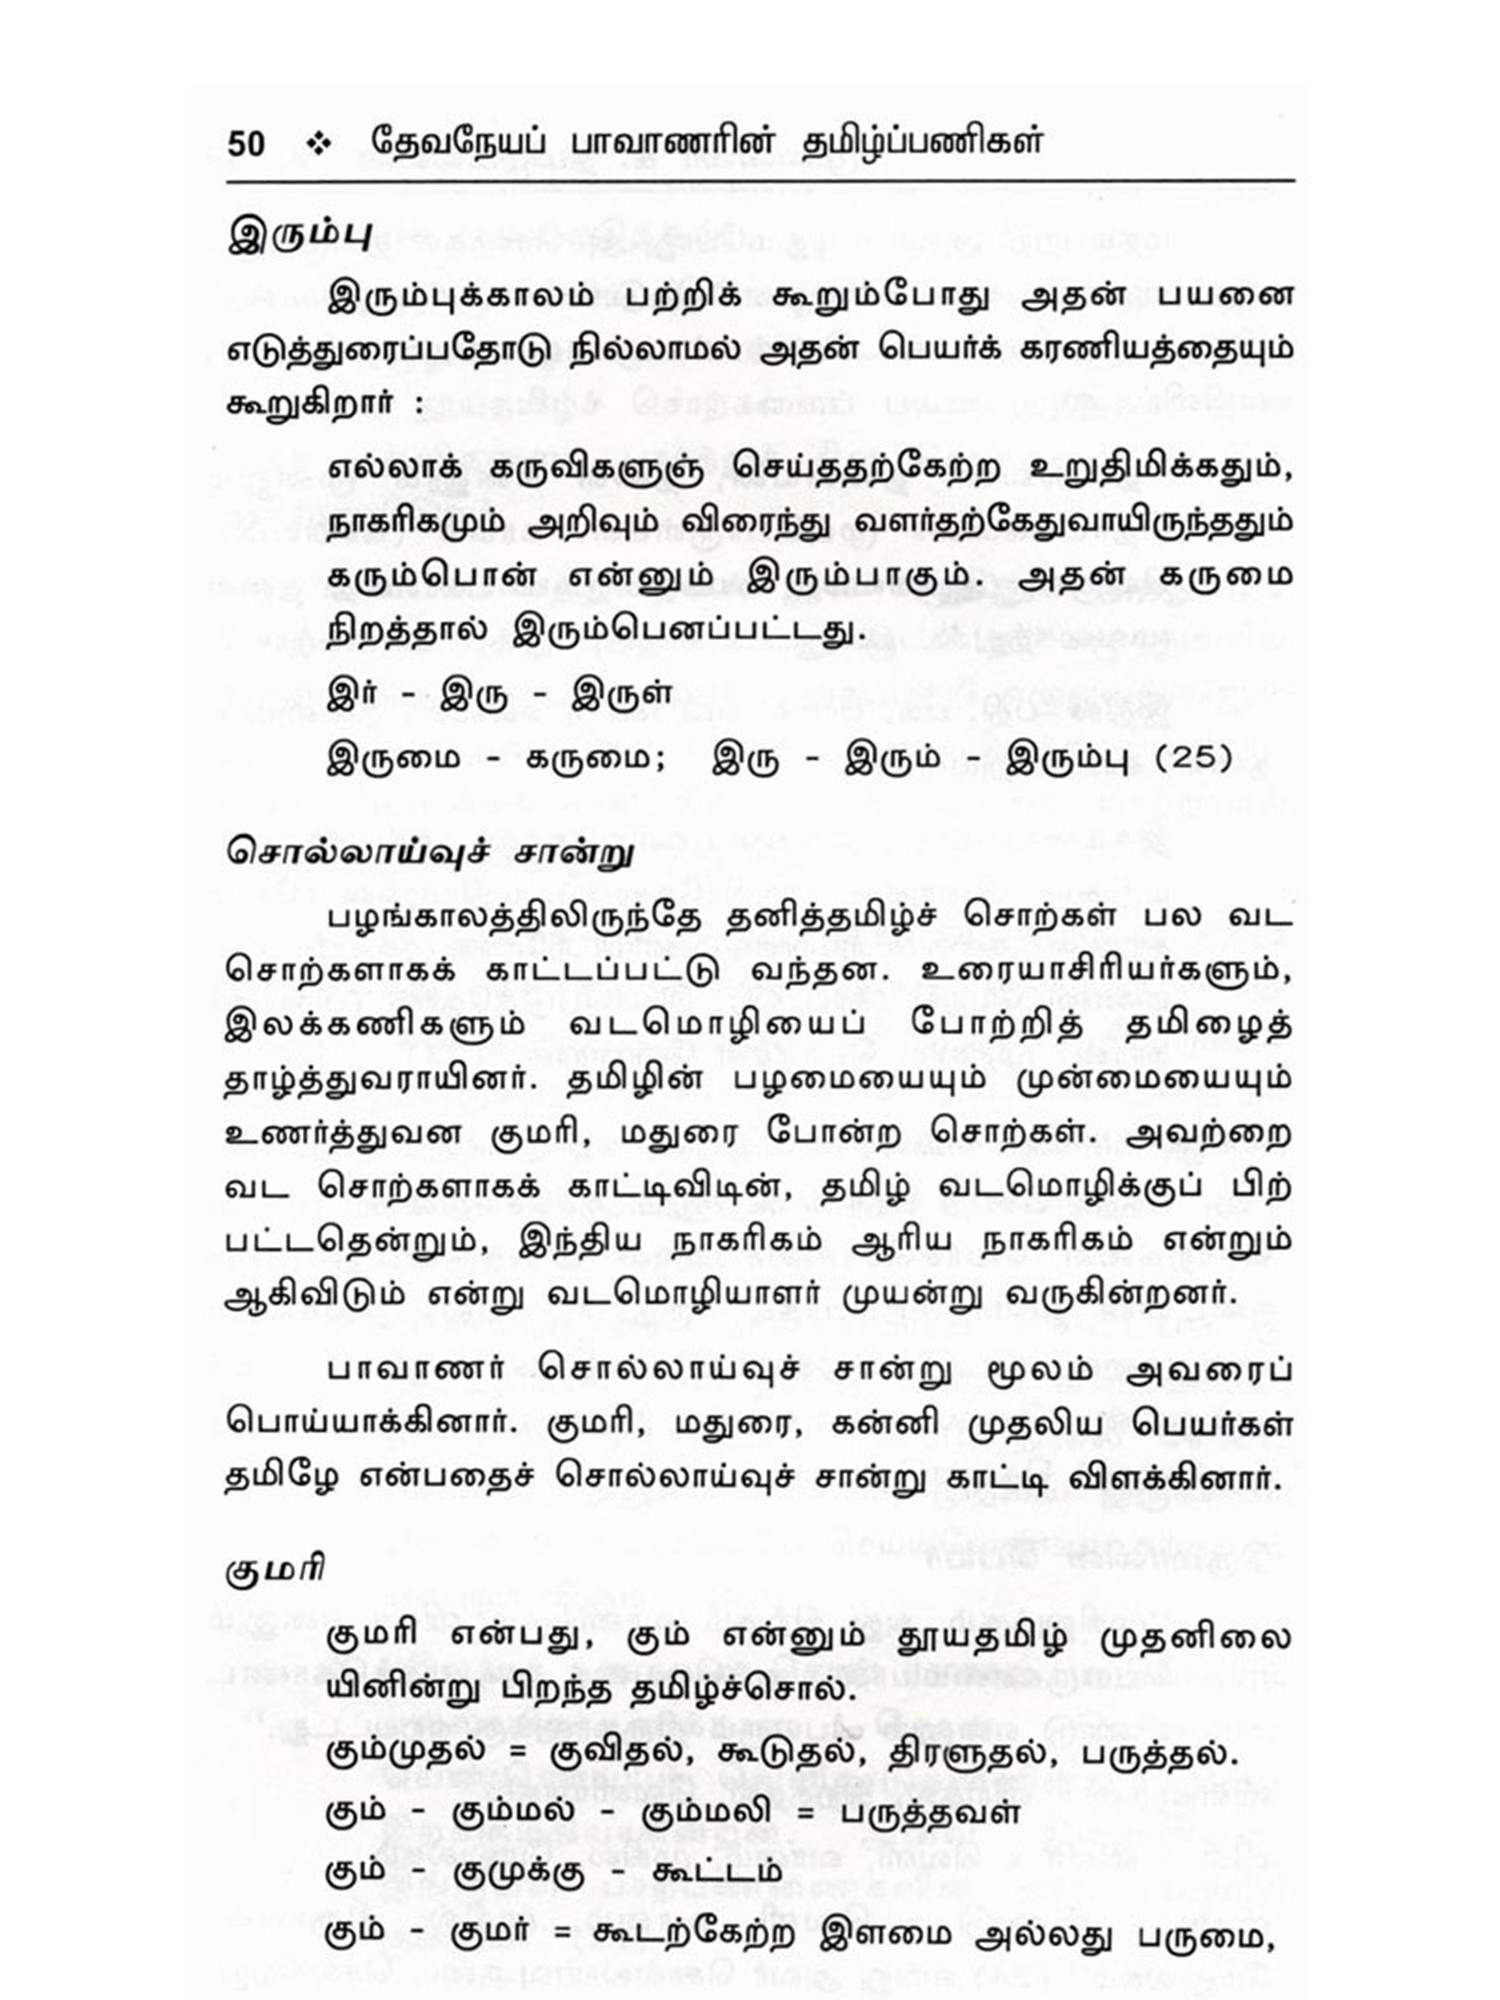 50 ❖ தேவநேயப் பாவாணரின் தமிழ்ப்பணிகள்
இரும்பு
இரும்புக்காலம் பற்றிக் கூறும்போது அதன் பயனை
எடுத்துரைப்பதோடு நில்லாமல் அதன் பெயர்க் கரணியத்தையும்
கூறுகிறார் :
எல்லாக் கருவிகளுஞ் செய்ததற்கேற்ற உறுதிமிக்கதும்,
நாகரிகமும் அறிவும் விரைந்து வளர்தற்கேதுவாயிருந்ததும்
கரும்பொன் என்னும் இரும்பாகும். அதன் கருமை
நிறத்தால் இரும்பெனப்பட்டது.
இர் - இரு - இருள்
இருமை - கருமை; இரு - இரும் - இரும்பு (25)
சொல்லாய்வுச் சான்று
பழங்காலத்திலிருந்தே தனித்தமிழ்ச் சொற்கள் பல வட
சொற்களாகக் காட்டப்பட்டு வந்தன. உரையாசிரியர்களும்,
இலக்கணிகளும் வடமொழியைப் போற்றித் தமிழைத்
தாழ்த்துவராயினர். தமிழின் பழமையையும் முன்மையையும்
உணர்த்துவன குமரி, மதுரை போன்ற சொற்கள். அவற்றை
வட சொற்களாகக் காட்டிவிடின், தமிழ் வடமொழிக்குப் பிற்
பட்டதென்றும், இந்திய நாகரிகம் ஆரிய நாகரிகம் என்றும்
ஆகிவிடும் என்று வடமொழியாளர் முயன்று வருகின்றனர்.
பாவாணர் சொல்லாய்வுச் சான்று மூலம் அவரைப்
பொய்யாக்கினார். குமரி, மதுரை, கன்னி முதலிய பெயர்கள்
தமிழே என்பதைச் சொல்லாய்வுச் சான்று காட்டி விளக்கினார்.
குமரி
குமரி என்பது, கும் என்னும் தூயதமிழ் முதனிலை
யினின்று பிறந்த தமிழ்ச்சொல்.
கும்முதல் = குவிதல், கூடுதல், திரளுதல், பருத்தல்.
கும் - கும்மல் - கும்மலி = பருத்தவள்
கும் - குமுக்கு - கூட்டம்
கும் - குமர் = கூடற்கேற்ற இளமை அல்லது பருமை,